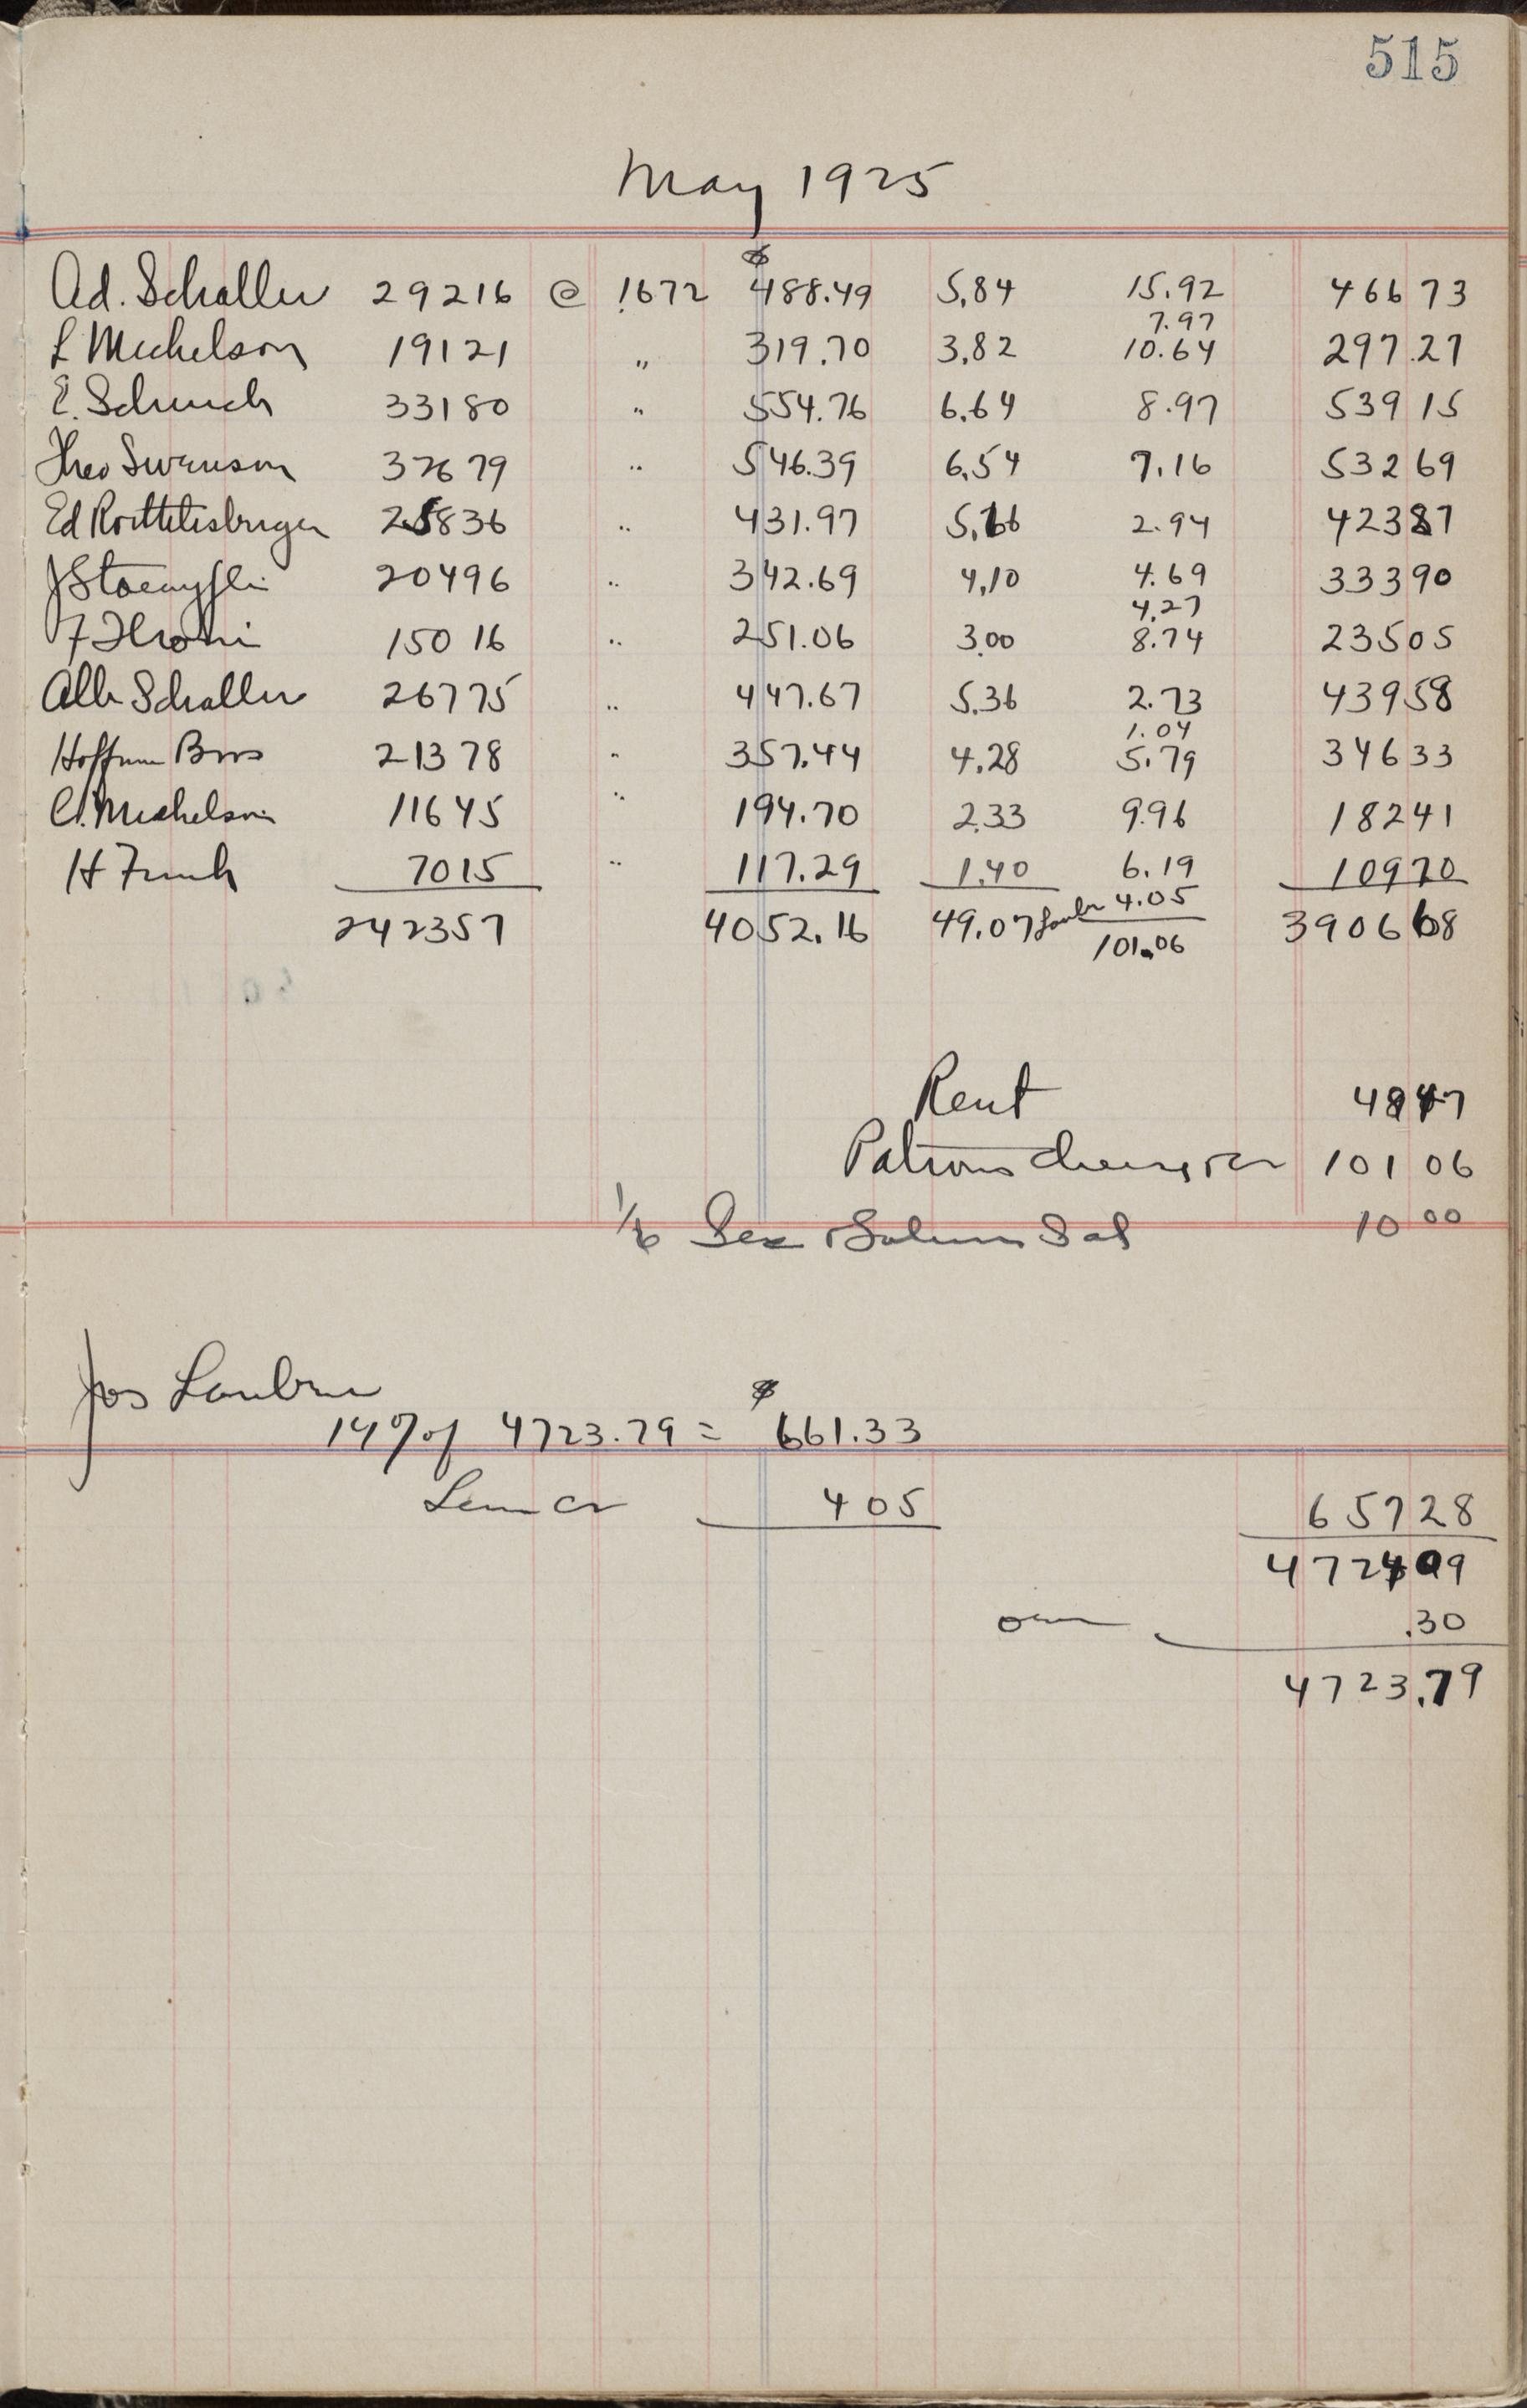 515
May 1925
Ad. Schaller 29216 @ .1672 $488.49 5.84 15.92 466 73
7.97
L Michelson 19121 " 319.70 3.82 10.64 297.27
E. Schuch 33180 " 554.76 6.64 8.97 539 15
Theo Swenson 32679 " 546.39 6.54 7.16 532 69
Ed Roethlisberger 25836 " 431.97 5.16 2.94 423 87
J Staempfli 20496 " 342.69 4.10 4.69 333 90
4.27
F 15016 " 251.06 3.00 8.74 235 05
Alb Schaller 26775 " 447.67 5.36 2.73 439 58
1.04
Hoffman Bros 21378 " 357.44 4.28 5.79 346 33
C. Michelson 11645 " 194.70 2.33 9.96 182 41
H Funk 7015 " 117.29 1.40 6.19 109 70
Laubr 4.05
242357 4052.16 49.07 101.06 3906 68
Rent 48 47
Patrons cheese &cr 101 06
1/6 Sec & Salem Sal 10 00
Jos Laubner
14% of 4723.79 = $661.33
cr 4 05 657 28
4724 09
.30
4723.79